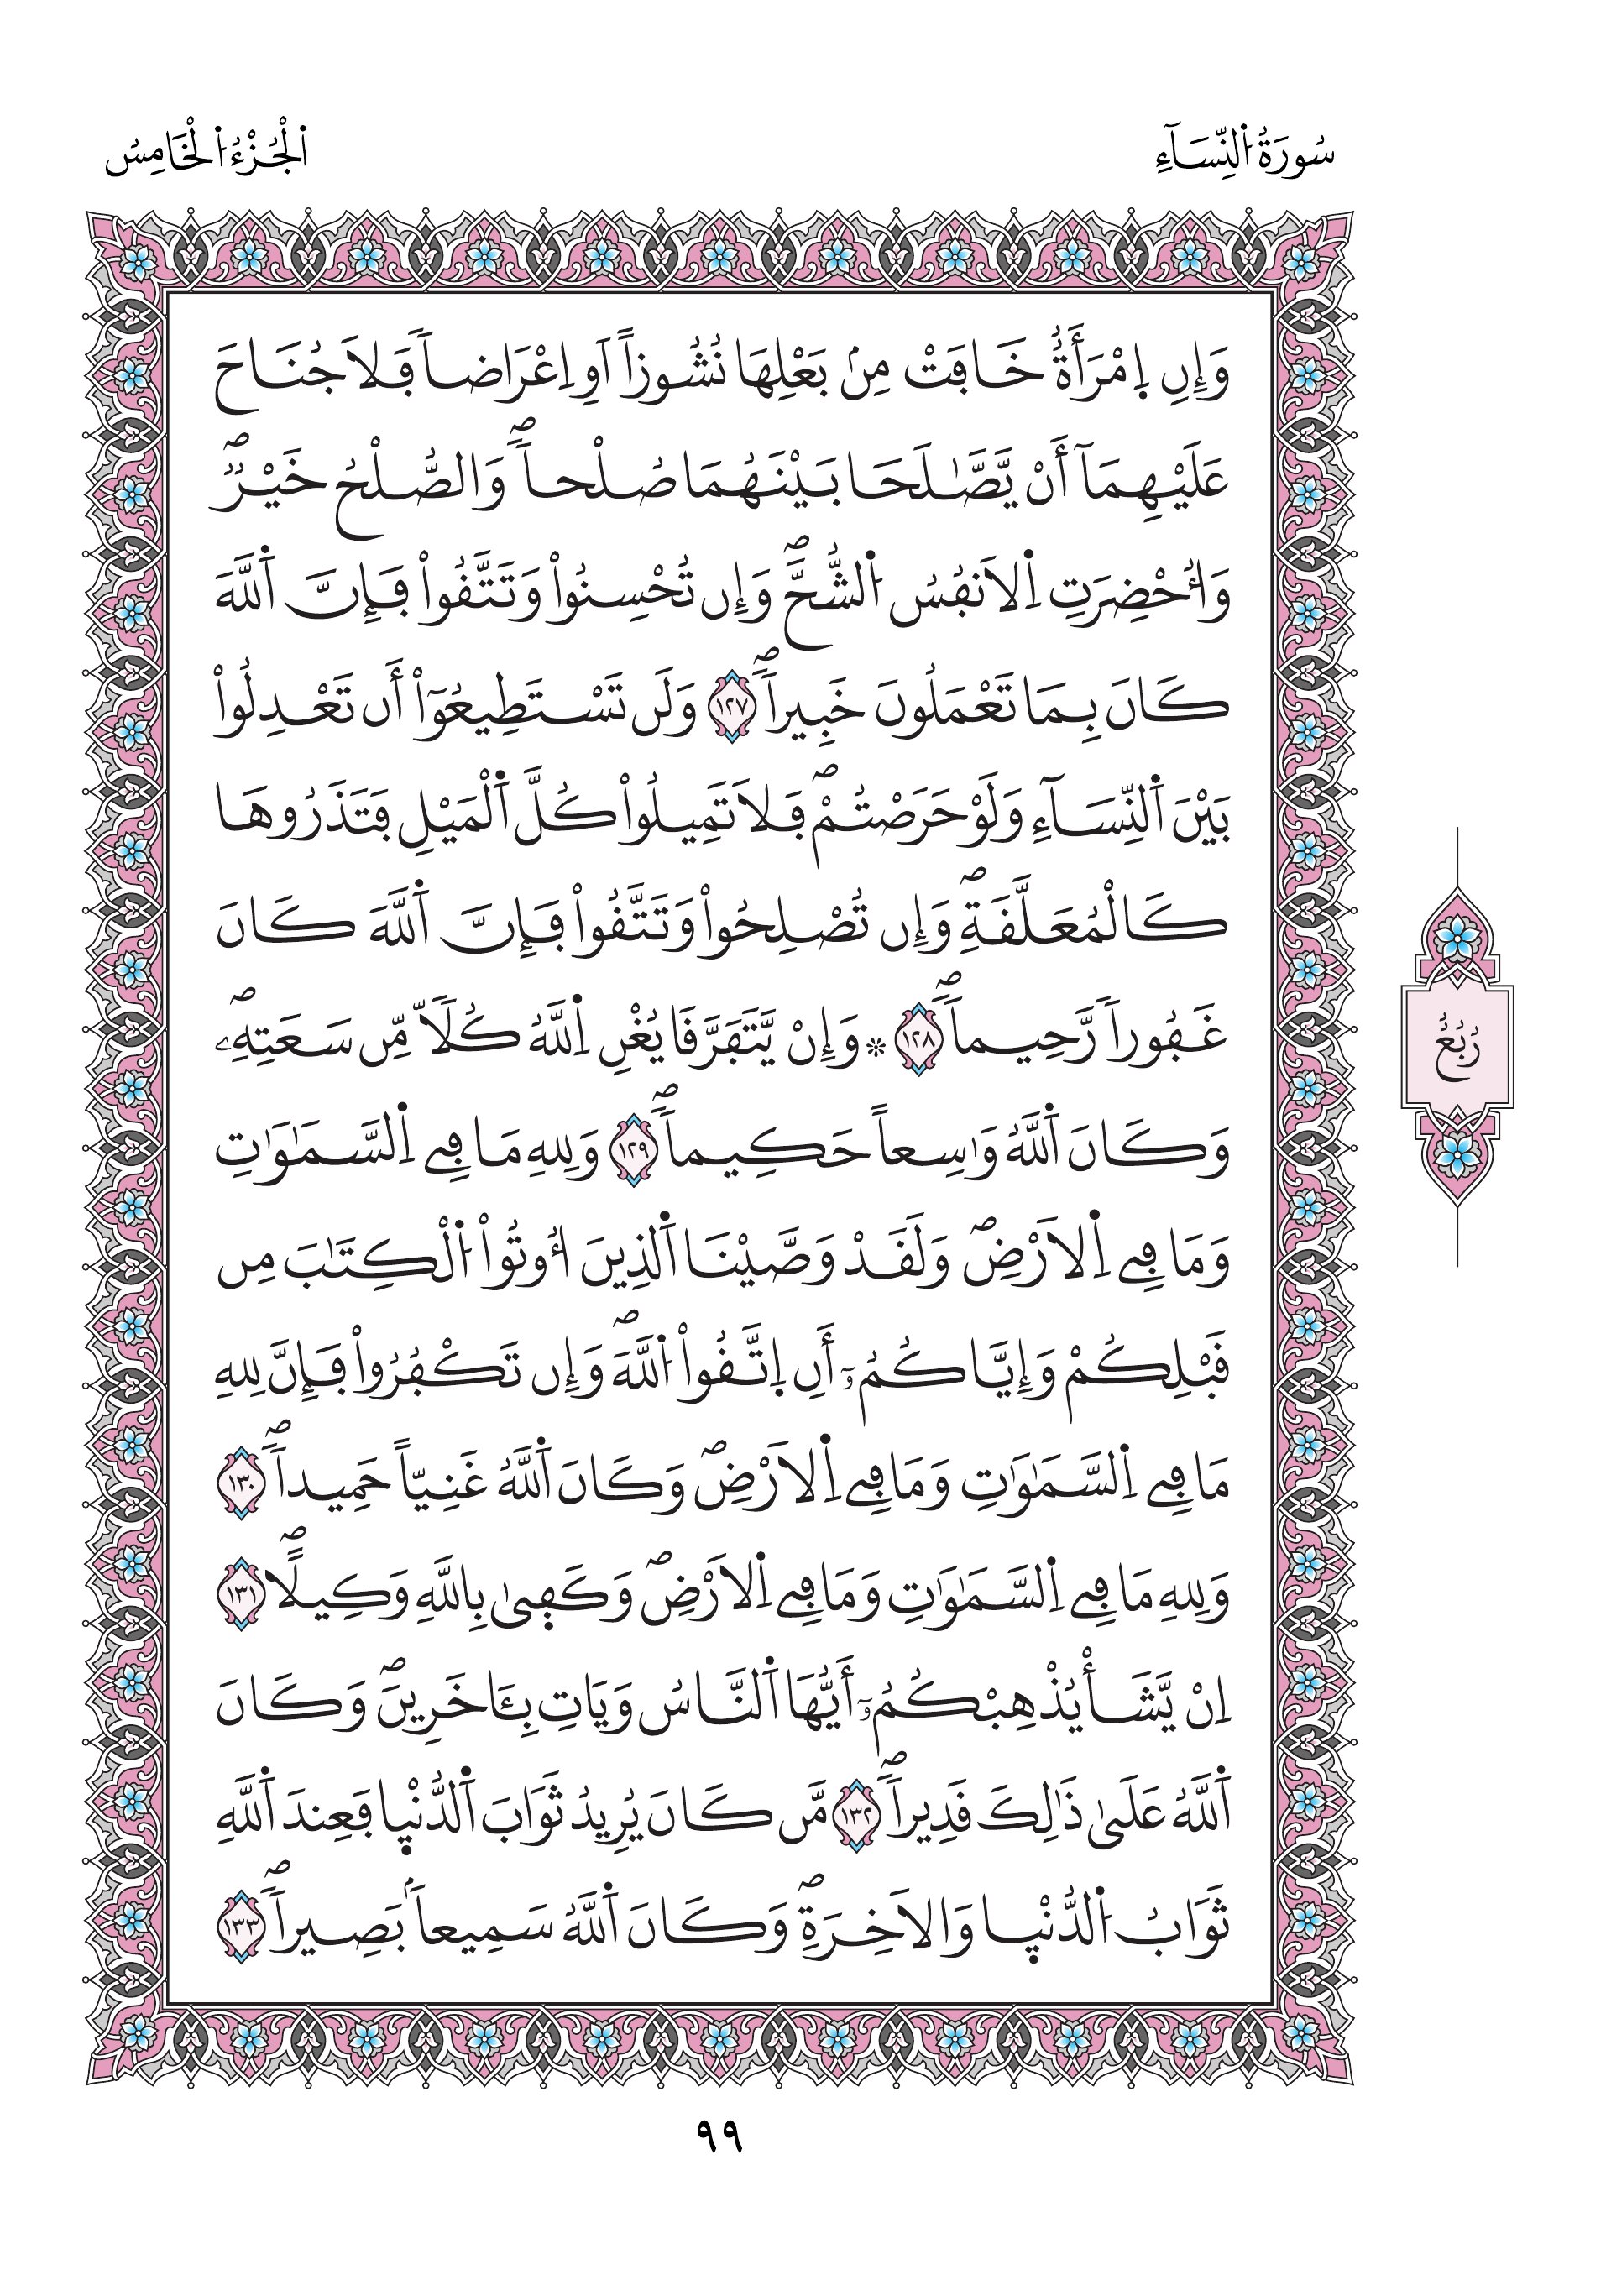 سُورَةُ اُ۬لنِّسَآءِ
اَ۬لْجُزْءُ اُ۬لْخَامِسُ
وَإِنِ اِ۪مْرَأَةٌ خَافَتْ مِنۢ بَعْلِهَا نُشُوزاً اَوِ اِعْرَاضاٗ فَلَا جُنَاحَ
عَلَيْهِمَآ أَنْ يَّصَّٰلَحَا بَيْنَهُمَا صُلْحاٗۖ وَالصُّلْحُ خَيْرٞۖ
وَأُحْضِرَتِ اِ۬لَانفُسُ اُ۬لشُّحَّۖ وَإِن تُحْسِنُواْ وَتَتَّقُواْ فَإِنَّ اَ۬للَّهَ
كَانَ بِمَا تَعْمَلُونَ خَبِيراٗۖ ١٢٧ وَلَن تَسْتَطِيعُوٓاْ أَن تَعْدِلُواْ
بَيْنَ اَ۬لنِّسَآءِ وَلَوْ حَرَصْتُمْۖ فَلَا تَمِيلُواْ كُلَّ اَ۬لْمَيْلِ فَتَذَرُوهَا
كَالْمُعَلَّقَةِۖ وَإِن تُصْلِحُواْ وَتَتَّقُواْ فَإِنَّ اَ۬للَّهَ كَانَ
غَفُوراٗ رَّحِيماٗۖ ١٢٨ * وَإِنْ يَّتَفَرَّقَا يُغْنِ اِ۬للَّهُ كُلّاٗ مِّن سَعَتِهِۦۖ
وَكَانَ اَ۬للَّهُ وَٰسِعاً حَكِيماٗۖ ١٢٩ وَلِلهِ مَا فِے اِ۬لسَّمَٰوَٰتِ
وَمَا فِے اِ۬لَارْضِۖ وَلَقَدْ وَصَّيْنَا اَ۬لذِينَ أُوتُواْ اُ۬لْكِتَٰبَ مِن
قَبْلِكُمْ وَإِيَّاكُمُۥٓ أَنِ اِ۪تَّقُواْ اُ۬للَّهَۖ وَإِن تَكْفُرُواْ فَإِنَّ لِلهِ
مَا فِے اِ۬لسَّمَٰوَٰتِ وَمَا فِے اِ۬لَارْضِۖ وَكَانَ اَ۬للَّهُ غَنِيّاً حَمِيداٗۖ ١٣٠
وَلِلهِ مَا فِے اِ۬لسَّمَٰوَٰتِ وَمَا فِے اِ۬لَارْضِۖ وَكَف۪ىٰ بِاللَّهِ وَكِيلًاۖ ١٣١
اِنْ يَّشَأْ يُذْهِبْكُمُۥٓ أَيُّهَا اَ۬لنَّاسُ وَيَاتِ بِـَٔاخَرِينَۖ وَكَانَ
اَ۬للَّهُ عَلَىٰ ذَٰلِكَ قَدِيراٗۖ ١٣٢ مَّن كَانَ يُرِيدُ ثَوَابَ اَ۬لدُّنْي۪ا فَعِندَ اَ۬للَّهِ
ثَوَابُ اُ۬لدُّنْي۪ا وَالَاخِرَةِۖ وَكَانَ اَ۬للَّهُ سَمِيعاَۢ بَصِيراٗۖ ١٣٣
رُبُعُ
٩٩